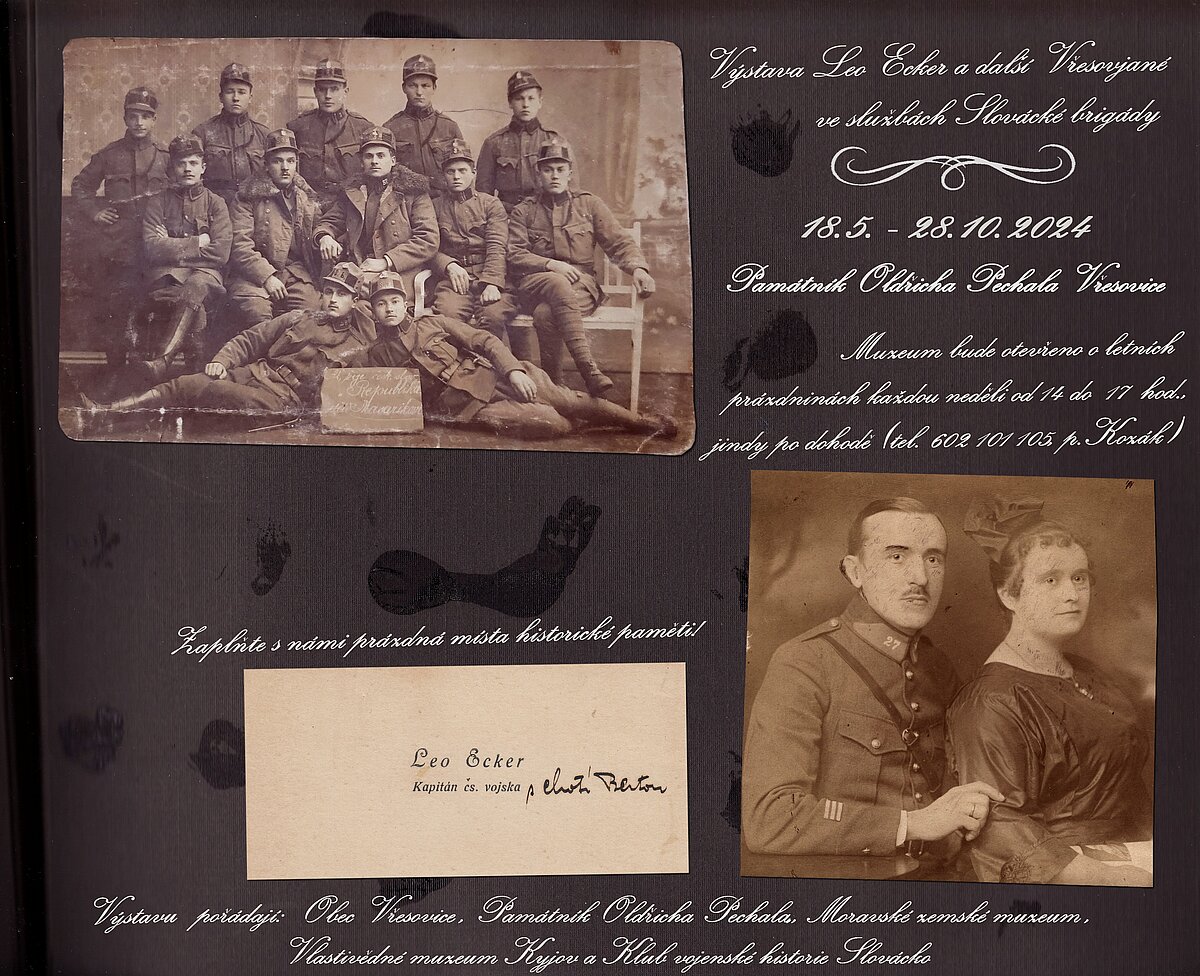 Výstava Leo Ecker a další Vřesovjané
ve službách Slovácké brigády
18.5. - 28.10.2024
Památník Oldřicha Pechala Vřesovice
Muzeum bude otevřeno o letních
prázdninách každou neděli od 14 do 17 hod.,
jindy po dohodě (tel. 602 101 105, p. Kozák)
Republika
Masarikova
27
Zaplňte s námi prázdná místa historické paměti!
Leo Ecker
Kapitán čs. vojska s chotí Bertou
Výstavu pořádají: Obec Vřesovice, Památník Oldřicha Pechala, Moravské zemské muzeum,
Vlastivědné muzeum Kyjov a Klub vojenské historie Slovácko